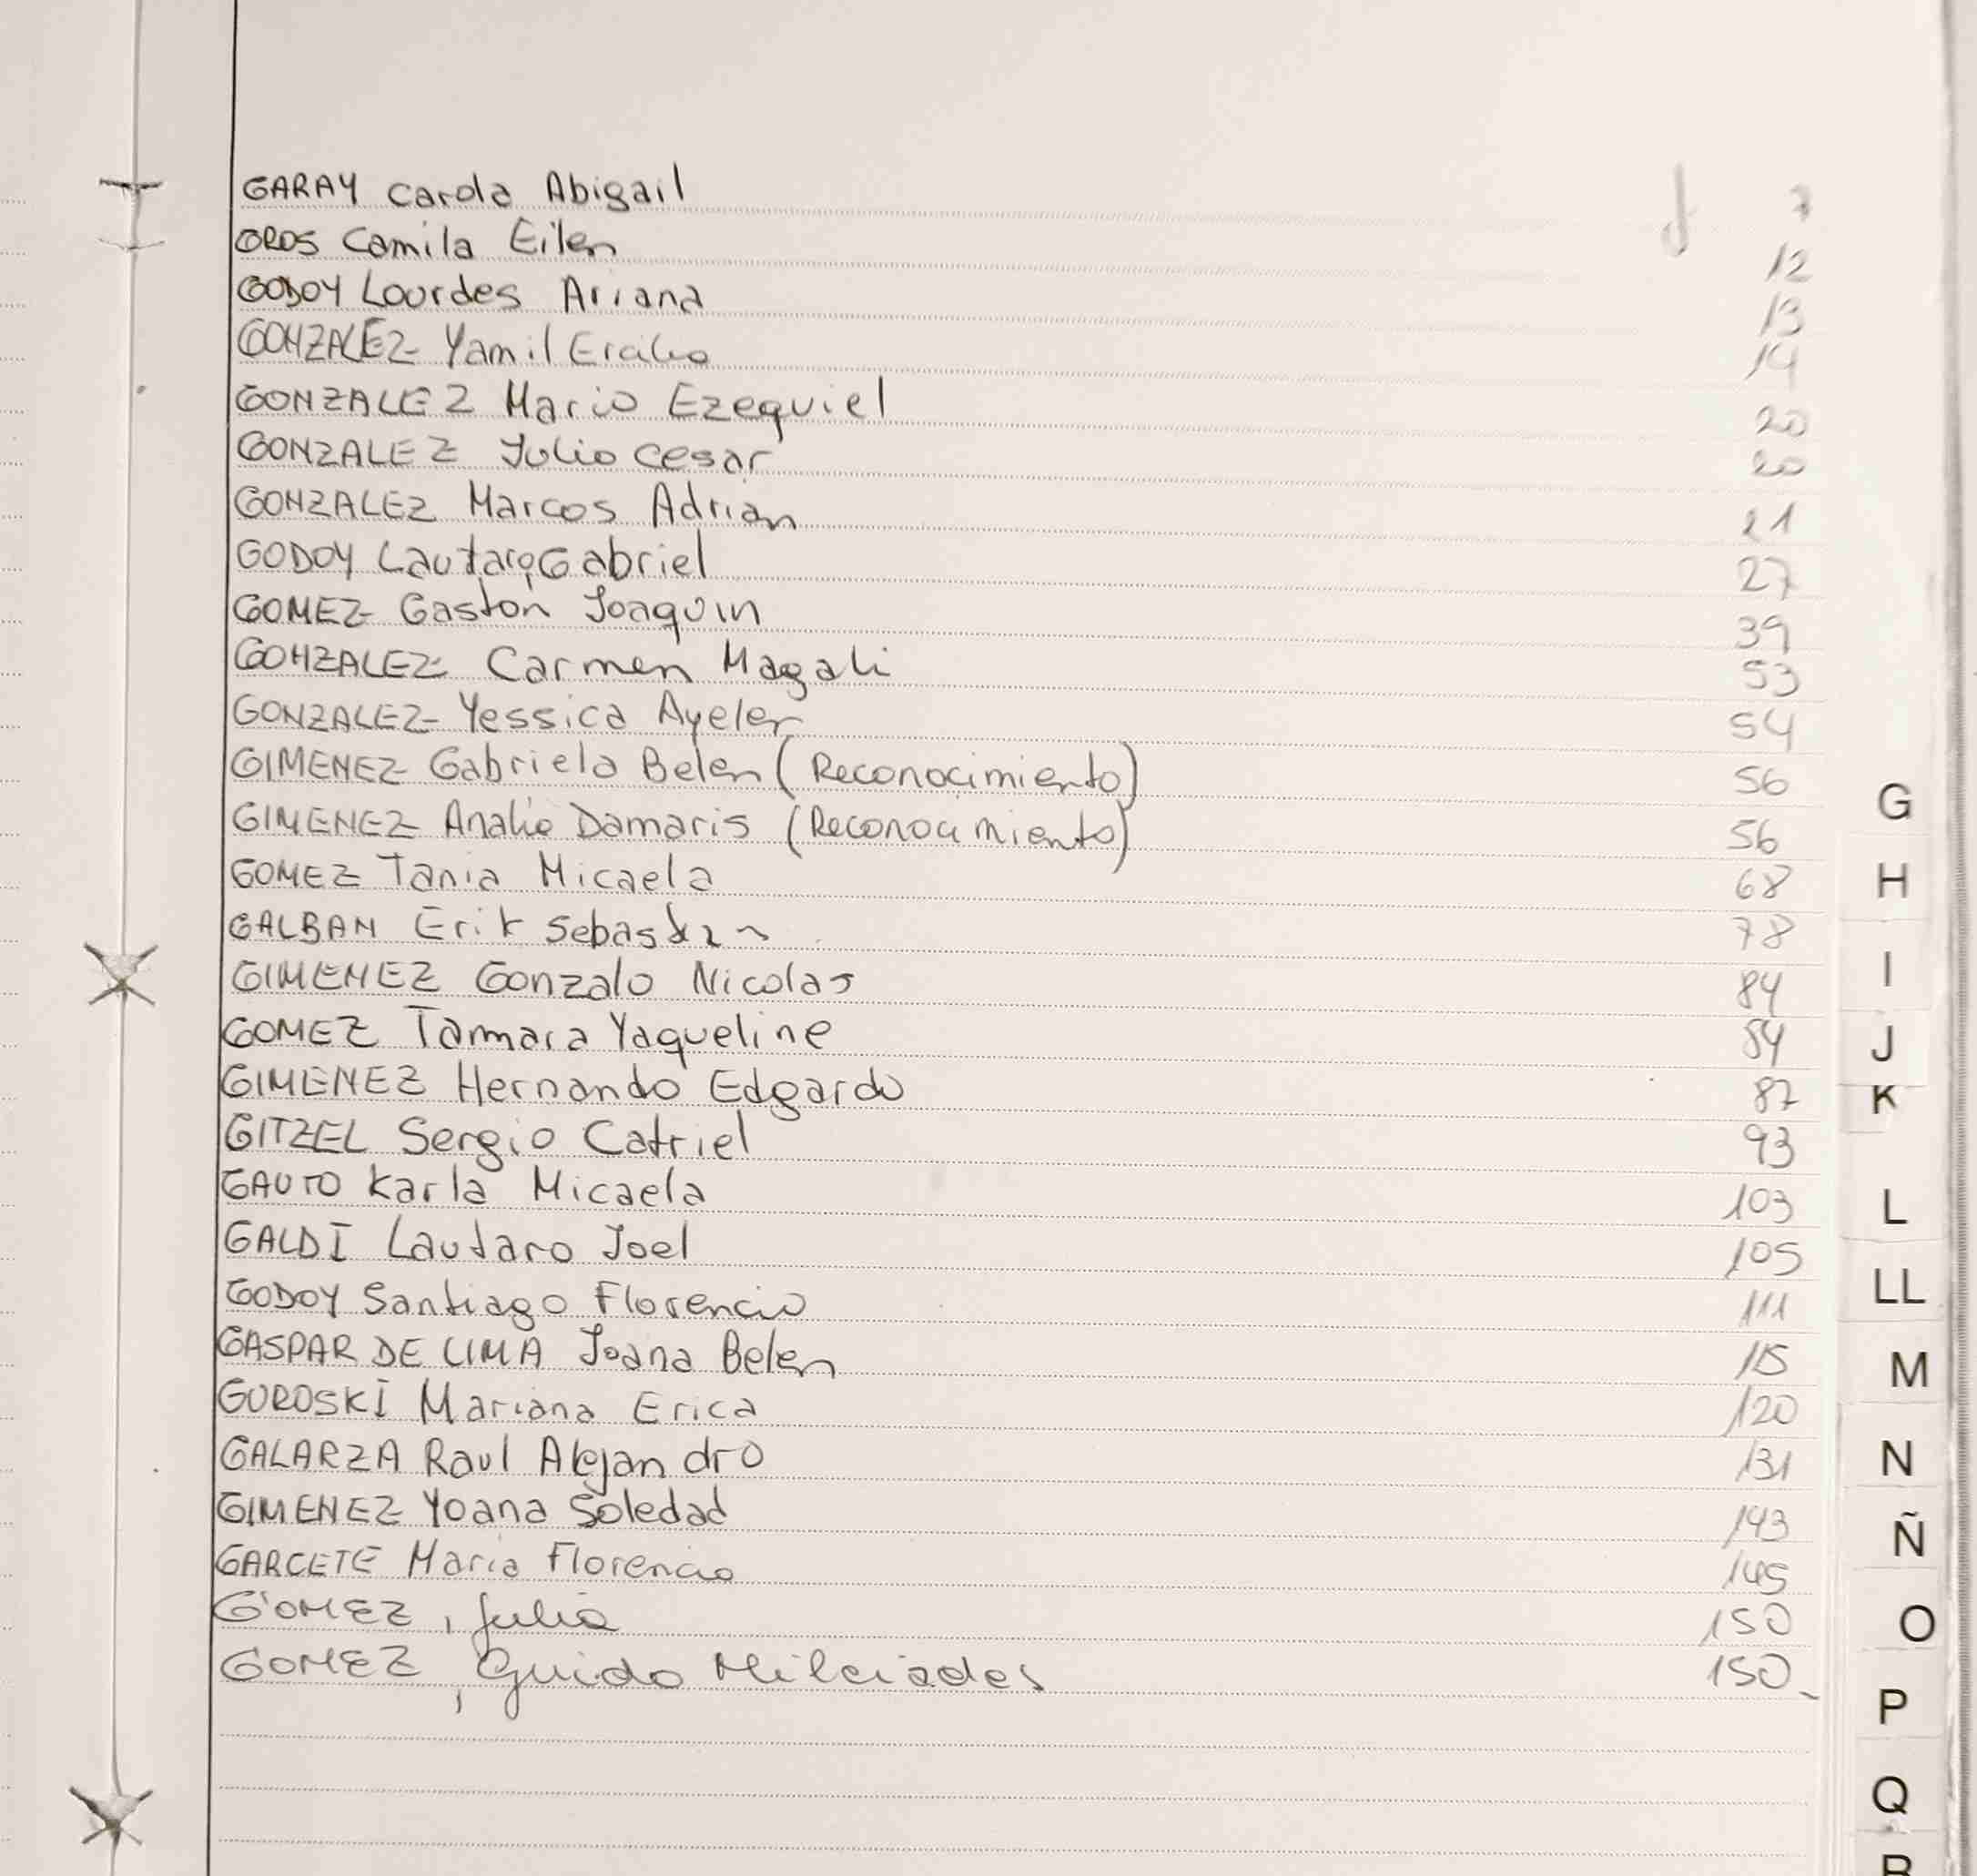 GARAY Carola Abigail 7
OROS Camila Eilen 12
GODOY Lourdes Ariana 13
GONZALEZ Yamil 14
GONZALEZ Mario Ezequiel 20
GONZALEZ Julio Cesar 20
GONZALEZ Marcos Adrian 21
GODOY Lautaro Gabriel 27
GOMEZ Gaston Joaquin 39
GONZALEZ Carmen Magali 53
GONZALEZ Yessica Ayelen 54
GIMENEZ Gabriela Belen (Reconocimiento) 56
GIMENEZ Analia Damaris (Reconocimiento) 56
GOMEZ Tania Micaela 68
GALBAN Erik Sebastian 78
GIMENEZ Gonzalo Nicolas 84
GOMEZ Tamara Yaqueline 84
GIMENEZ Hernando Edgardo 87
GITZEL Sergio Catriel 93
GAUTO Karla Micaela 103
GALDI Lautaro Joel 105
GODOY Santiago Florencio 111
GASPAR DE LIMA Joana Belen 115
GUROSKI Mariana Erica 120
GALARZA Raul Alejandro 131
GIMENEZ Yoana Soledad 143
GARCETE Maria Florencia 145
GOMEZ, Julia 150
GOMEZ, Guido Milciades 150
G
H
I
J
K
L
LL
M
N
Ñ
O
P
Q